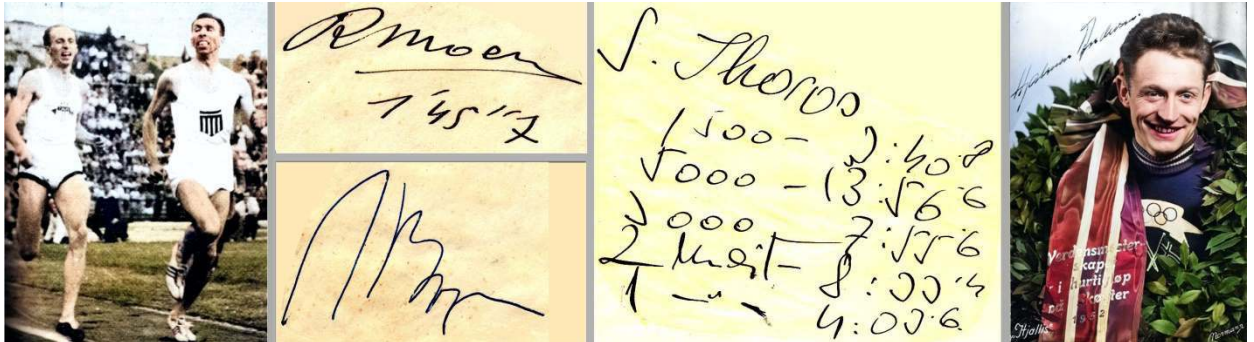 RMoen
1'45"7
S. Thoros
1500 - 3:40.8
5000 - 13:56.6
3000 7:55.6
2 - 8:33.4
1 - " - 4:03.6
Hjalmar Andersen
Verdensmester-
i hurtigløp
på
1952
"Hjallis"
Normann